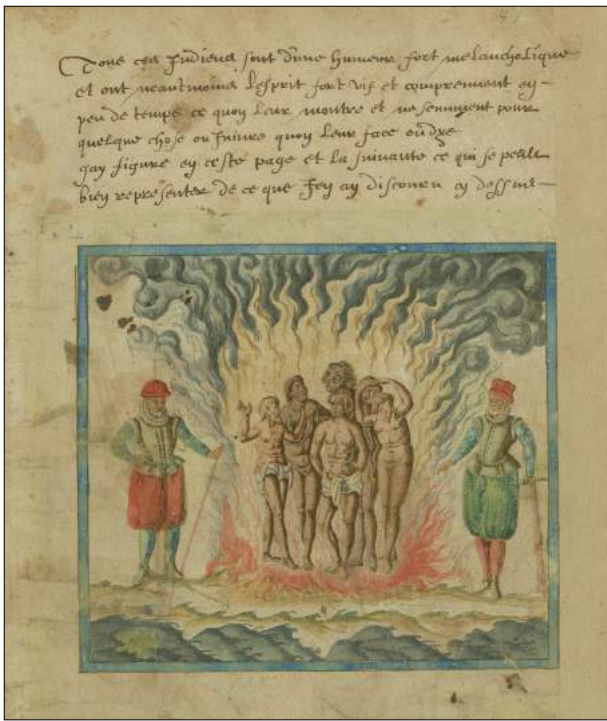 Tous ces Indiens sont d'une humeur fort melancholique
et ont neantmoins l'esprit fort vif et comprennent en
peu de temps ce quon leur montre et ne sennuient pour
quelque chose ou iniure quon leur face ou dye
Jay figure en ceste page et la suivante ce qui se peult
bien representer de ce que Jen ay discouru cy dessus